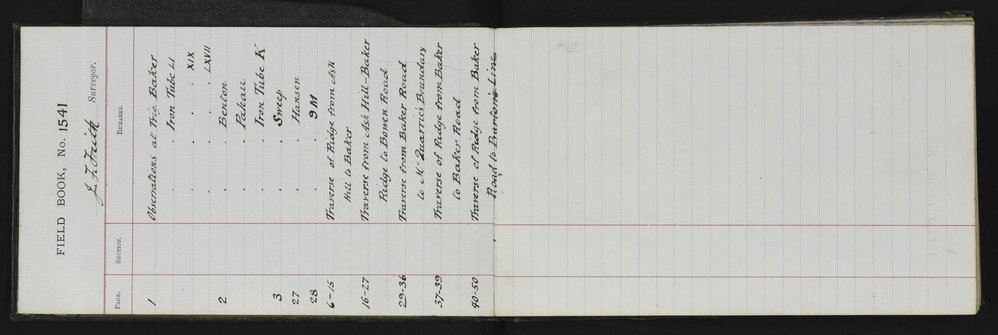 FIELD BOOK, No. 1541
J. F. Frith Surveyor.
PAGE. SECTION. REMARKS.
1 Observations at Trig. Baker
. . Iron Tube LI
. . . XIX
. . . LXVII
2 . . Benton
. . Pakau
. . Iron Tube K
3 . . Sweep
27 . . Hansen
28 . . 9M
6-15 Traverse of Ridge from Ash
Hill to Baker
16-27 Traverse from Ash Hill-Baker
Ridge to Bowen Road
29-36 Traverse from Baker Road
to McQuarrie's Boundary
37-39 Traverse of Ridge from Baker
to Baker Road
40-50 Traverse of Ridge from Baker
Road to Burton's Line